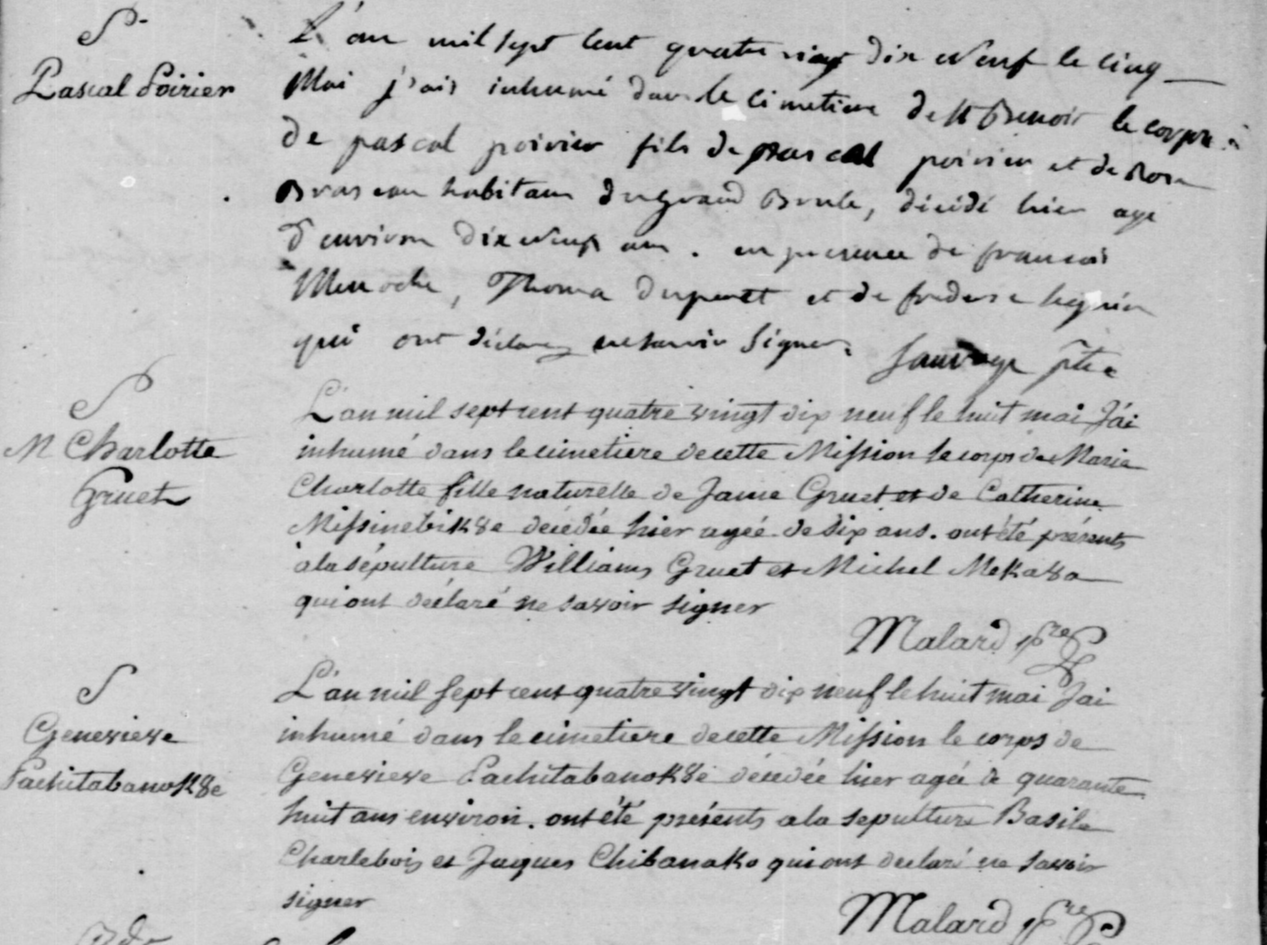 S
Pascal Poirier
L'an mil sept cent quatre vingt dix neuf le cinq
Mai j'ais inhumé dans le cimetiere de St Benoit le corps
de pascal poirier fils de pascal poirier et de Rose
Braseau habitans du grand Brule, décidé hier age
d'environ dix neuf ans. en presence de francois
Menoche, Thoma et de
qui ont déclarez ne savoir Signer. Sauvage ptre
S
M Charlotte
Gruet
L'an mil sept cent quatre vingt dix neuf le huit mai J'ai
inhumé dans le cimetiere de cette Mission le corps de Marie
Charlotte fille naturelle de Jame Gruet et de Catherine
Missinebik8e décédée hier agée de dix ans. ont été présents
à la sépulture Williams Gruet et Michel Meka8a
qui ont déclaré ne savoir signer
Malard ptre
S
Genevieve
Pachitabanok8e
L'an mil sept cent quatre vingt dix neuf le huit mai Jai
inhumé dans le cimetiere de cette Mission le corps de
Genevieve Pachitabanok8e décédée hier agée de quarante
huit ans environ. ont été présents a la sepulture Basile
Charlebois et Jaques Chibanako qui ont declaré ne savoir
signer
Malard ptre